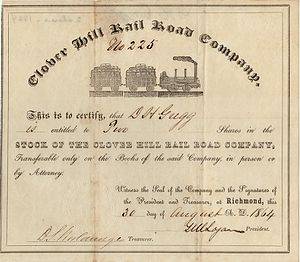 Clover Hill Rail Road Company.
No 225
This is to certify, that D H Gregg
is entitled to Two Shares in the
STOCK OF THE CLOVER HILL RAIL ROAD COMPANY,
Transferable only on the Books of the said Company, in person or
by Attorney.
Witness the Seal of the Company and the Signatures of
the President and Treasurer, at Richmond, this
30 day of August A. D. 1864
President.
Treasurer.